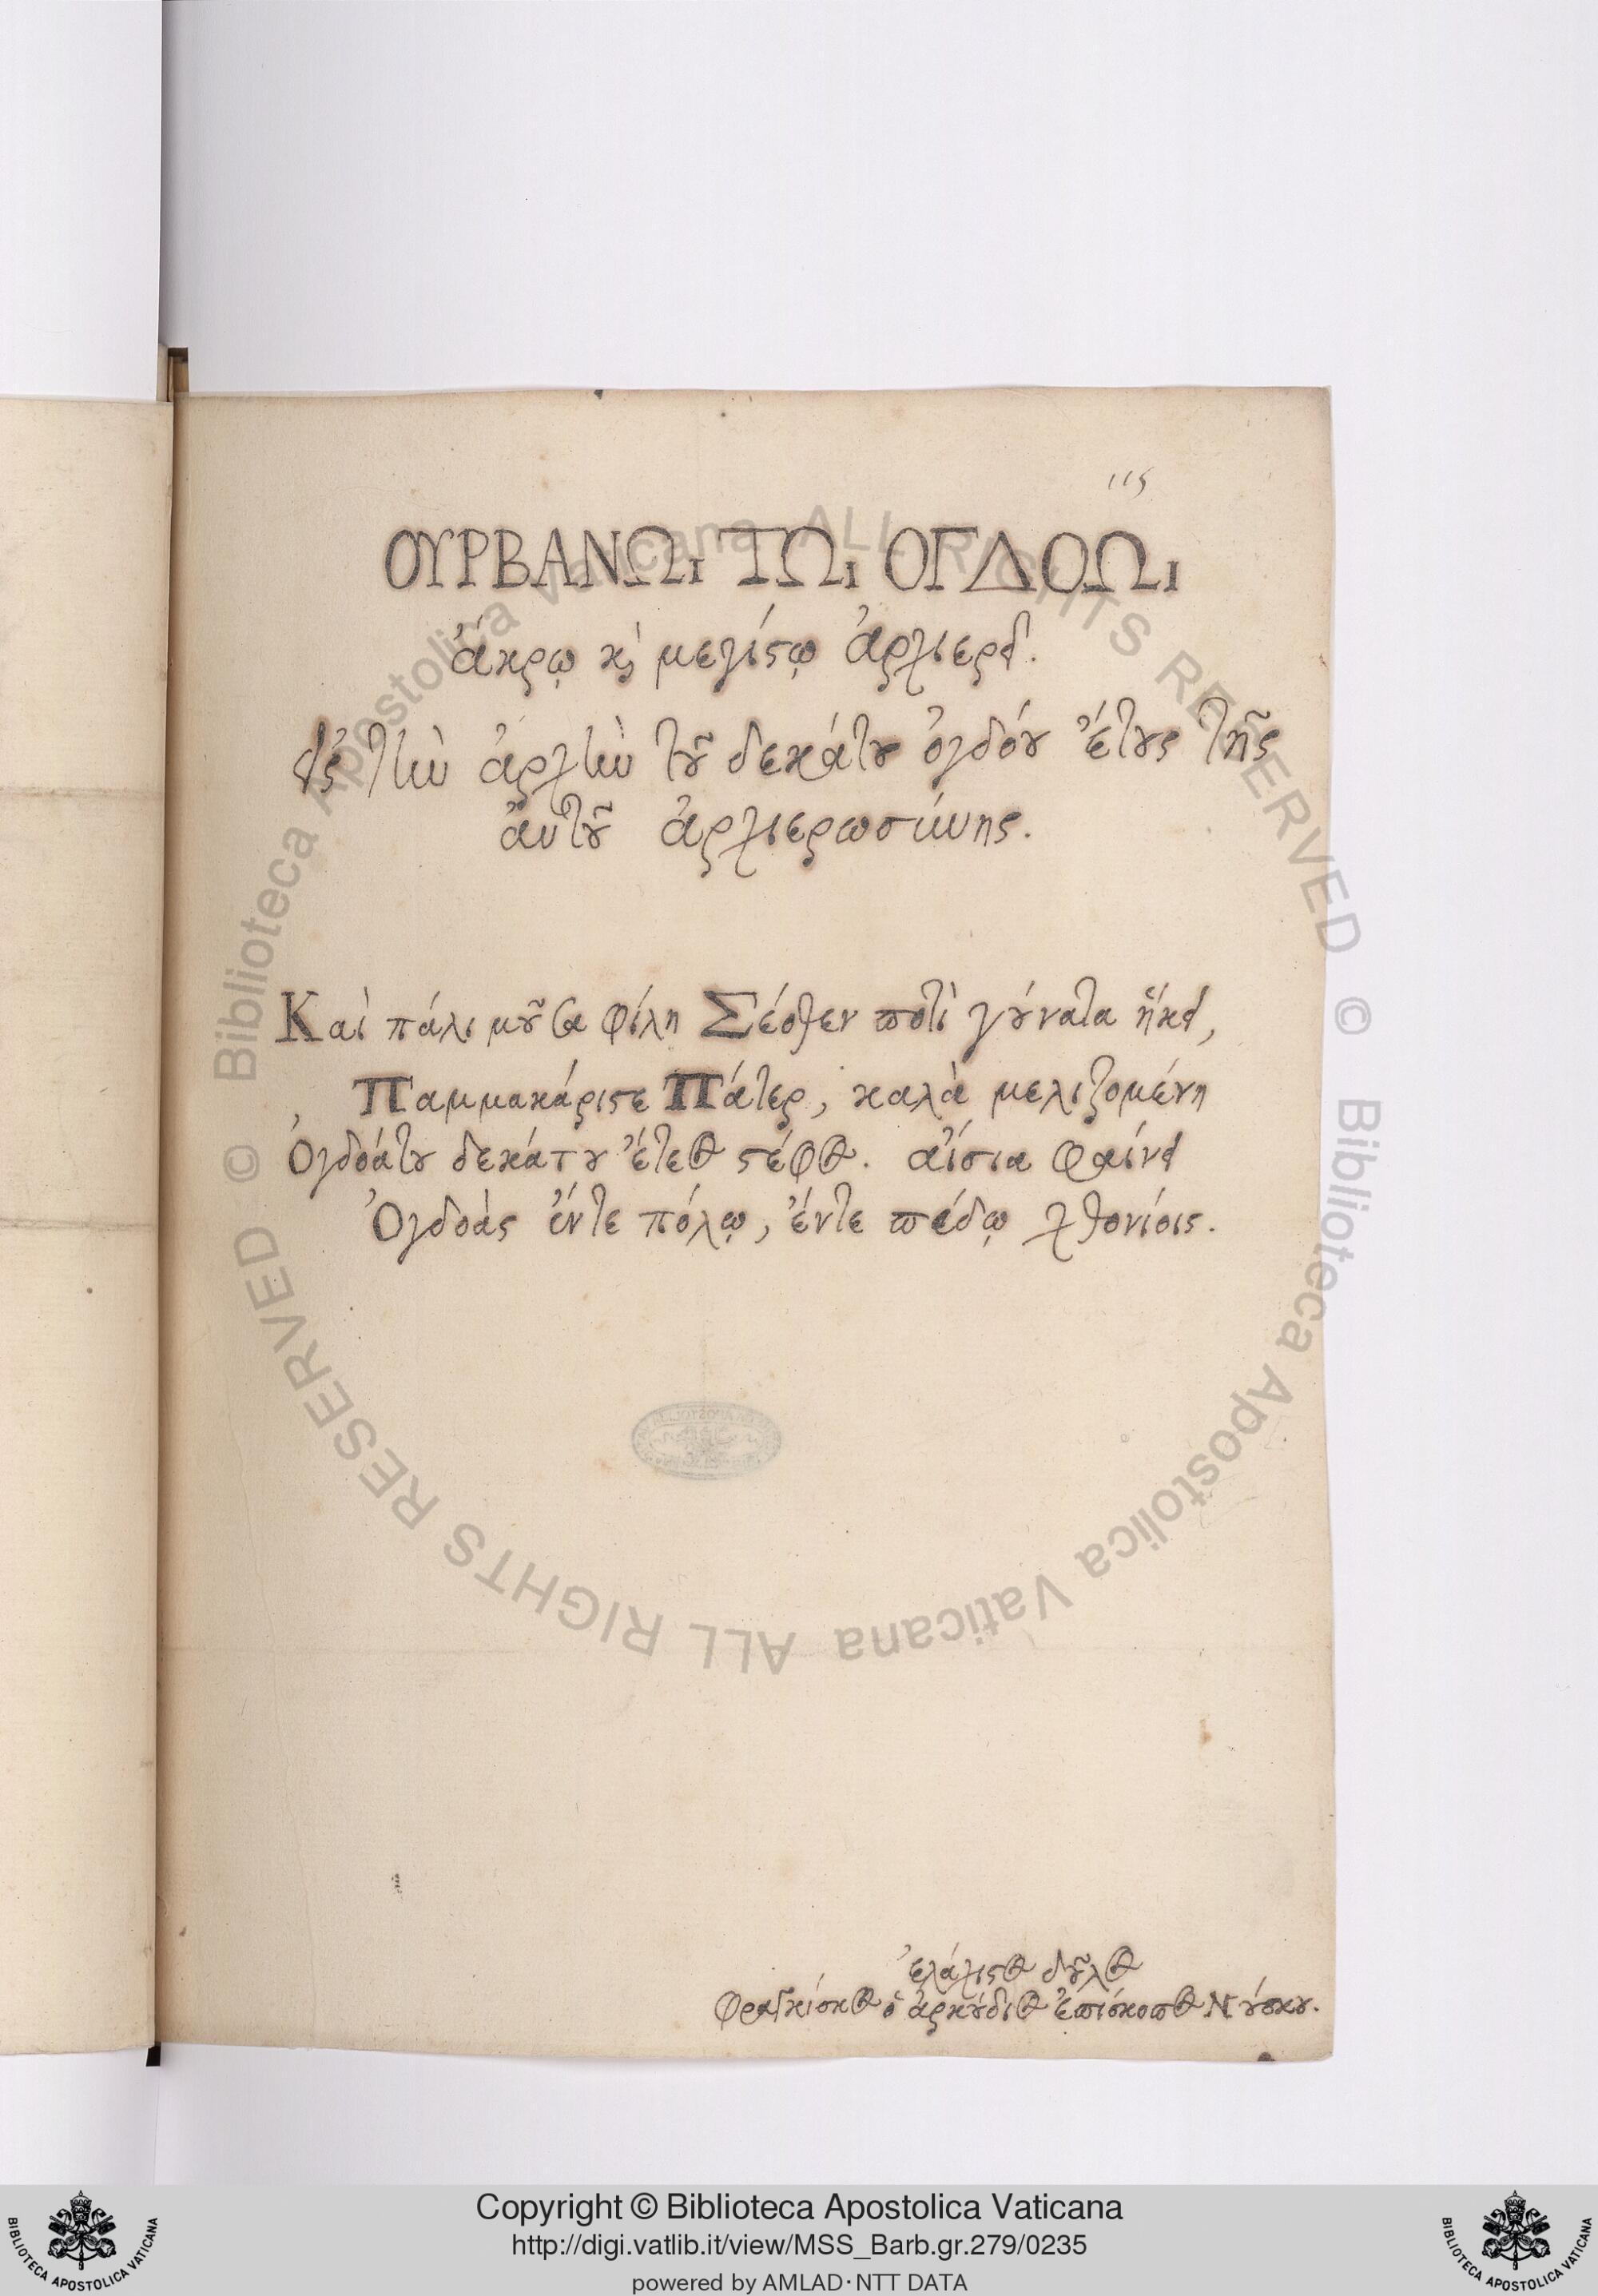 115
ΟΥΡΒΑΝΩι ΤΩι ΟΓΔΟΩι
ἄκρῳ κὶ μεγίστῳ ἀρχιερεῖ.
εἰς τὴν ἀρχὴν τοῦ δεκάτου ὀγδόου ἔτους τῆς
ἀυτοῦ ἀρχιερωσύνης.
Καὶ πάλι μοῦσα φίλη Σέοθεν ποτὶ γούνατα ἥκει,
Παμμακάριστε Πάτερ, καλὰ μελιζομένη
Ὀγδοάτου δεκάτου ἔτεος στέφος. αἴσια φαίνει
Ὀγδοὰς ἔντε πόλῳ, ἔντε πέδῳ χθονίοις.
ἐλάχιστος δοῦλος
Φραγκίσκος ὁ ἀρκούδιος ἐπίσκοπος Νούσκου.
© Biblioteca Apostolica Vaticana ALL RIGHTS RESERVED
© Biblioteca Apostolica Vaticana ALL RIGHTS RESERVED
Copyright © Biblioteca Apostolica Vaticana
http://digi.vatlib.it/view/MSS_Barb.gr.279/0235
powered by AMLAD·NTT DATA
BIBLIOTECA APOSTOLICA VATICANA
BIBLIOTECA APOSTOLICA VATICANA